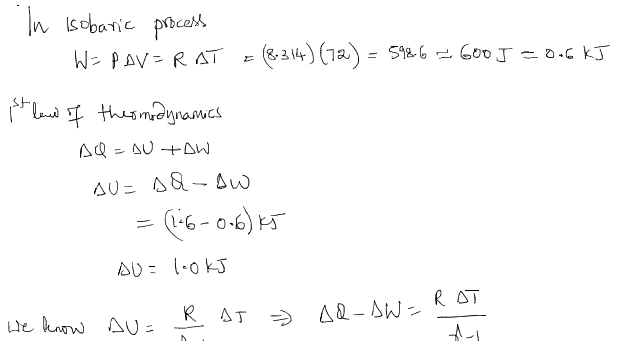 In Isobaric process
W = PΔV = R ΔT = (8.314)(72) = 598.6 ≃ 600 J = 0.6 kJ
1st law of thermodynamics
ΔQ = ΔU + ΔW
ΔU = ΔQ - ΔW
= (1.6 - 0.6) kJ
ΔU = 1.0 kJ
We know ΔU = R ΔT ⇒ ΔQ - ΔW = R ΔT / γ-1